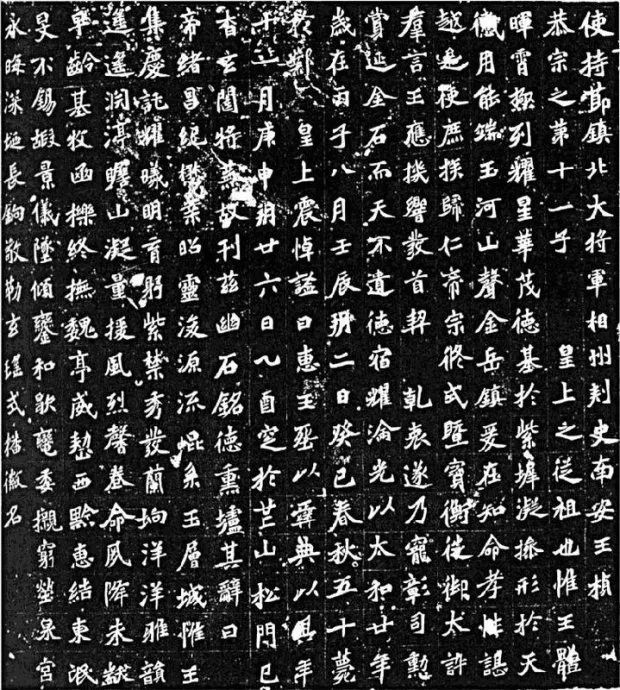 使持節鎮北大將軍相州刺史南安王楨
恭宗之第十一子 皇上之從祖也惟王體
暉霄極列耀星華茂德基於紫墀凝操形於天
儀用能端玉河山聲金岳鎮爰在知命孝性諶
越是使庶族歸仁帝宗攸式暨寶衡徙御大訊
羣言王應機響發首契 乾衷遂乃寵彰司勳
賞延金石而天不遺德宿耀淪光以太和廿年
歲在丙子八月壬辰朔二日癸巳春秋五十薨
於鄴 皇上震悼謚曰惠王葬以彝典以其年
十一月庚申朔廿六日乙酉窆於芒山松門已
杳玄闥將蕪故刊茲幽石銘德熏壚其辭曰
帝緒昌紀懋業昭靈浚源流崐系玉層城惟王
集慶託耀曦明育躬紫禁秀發蘭坰洋洋雅韻
遙遙淵渟瞻山凝量援風烈馨卷命夙降未黻
早齡基牧函櫟終撫魏亭威整西黔惠結東氓
旻不錫嘏景儀墜傾鑾和歇轙委櫬窮塋泉宮
永晦深埏長鋦敬勒玄瑤式播徽名